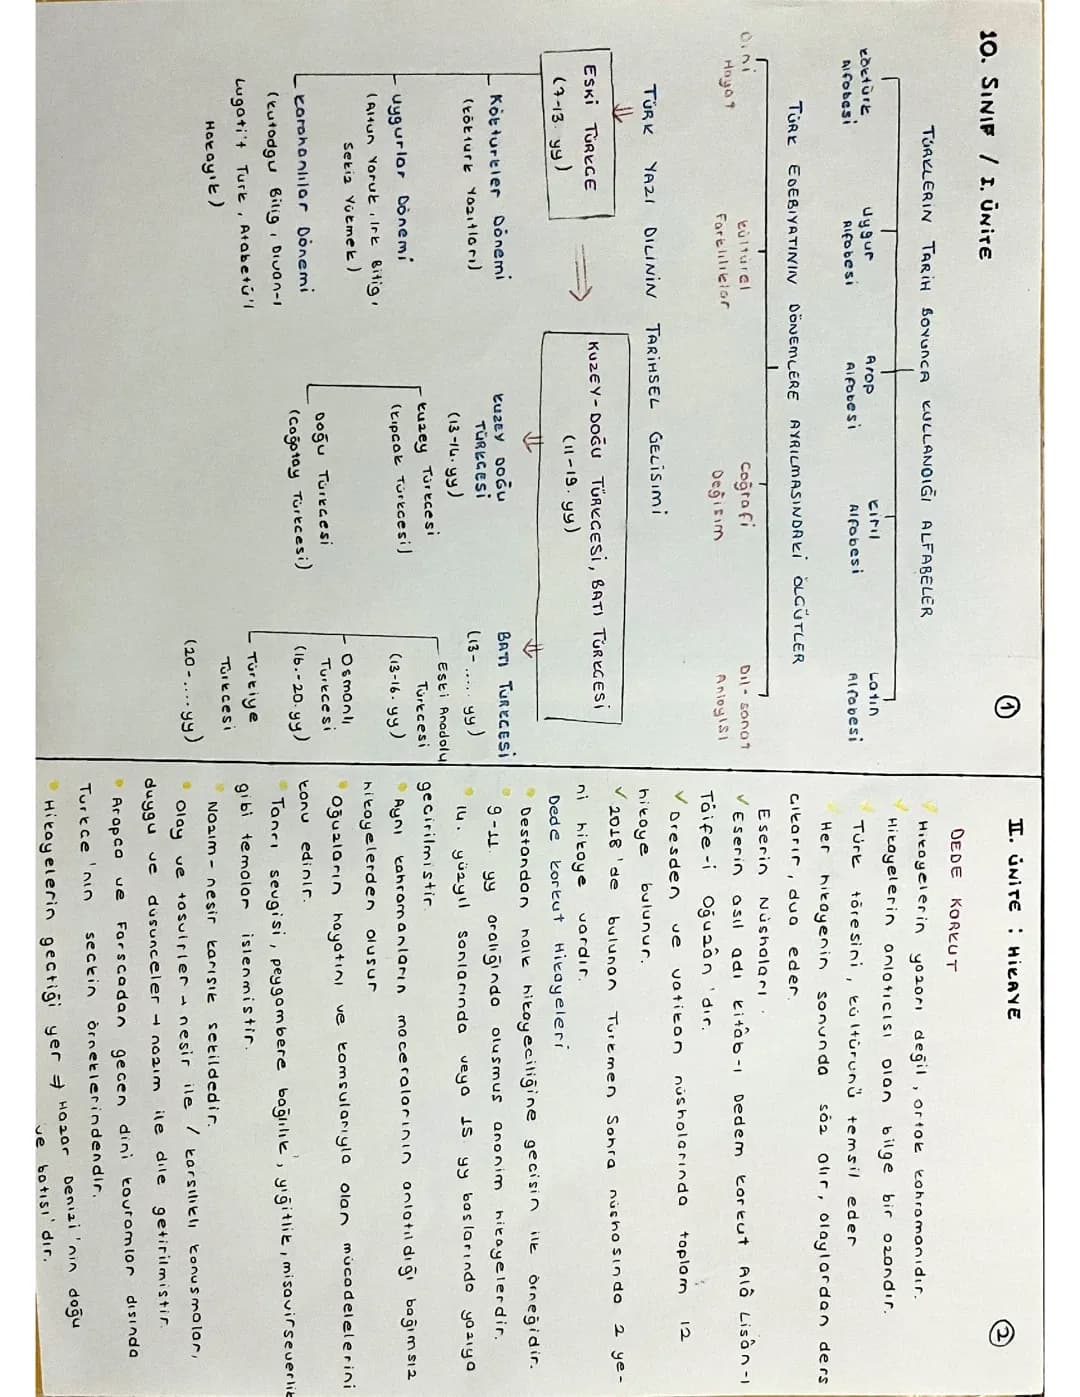 10. SINIF / I. ÜNİTE
①
TÜRKLERİN TARİH BOYUNCA KULLANDIĞI ALFABELER
Köktürk Alfabesi
Uygur Alfabesi
Arap Alfabesi
Kiril Alfabesi
Latin Alfabesi
TÜRK EDEBİYATININ DÖNEMLERE AYRILMASINDAKİ ÖLÇÜTLER
Dini Hayat
Kültürel Farklılıklar
Coğrafi Değişim
Dil-sanat Anlayışı
TÜRK YAZI DİLİNİN TARİHSEL GELİŞİMİ
ESKİ TÜRKÇE
(7-13. yy)
⇒
KUZEY-DOĞU TÜRKÇESİ, BATI TÜRKÇESİ
(11-19. yy)
Köktürkler Dönemi
(Köktürk Yazıtları)
Uygurlar Dönemi
(Altun Yaruk, Irk Bitig,
Sekiz Yükmek)
Karahanlılar Dönemi
(Kutadgu Bilig, Divan-ı
Lugati't Türk, Atabetü'l
Hakayık)
KUZEY DOĞU
TÜRKÇESİ
(13-14. yy)
Kuzey Türkçesi
(Kıpçak Türkçesi)
Doğu Türkçesi
(Çağatay Türkçesi)
BATI TÜRKÇESİ
(13-..... yy)
Eski Anadolu
Türkçesi
(13-16. yy)
Osmanlı
Türkçesi
(16.-20. yy)
Türkiye
Türkçesi
(20-.... yy)
II. ÜNİTE : HİKAYE
②
DEDE KORKUT
Hikayelerin yazarı değil, ortak kahramanıdır.
Hikayelerin anlatıcısı olan bilge bir ozandır.
Türk töresini, kültürünü temsil eder
Her hikayenin sonunda söz alır, olaylardan ders
çıkarır, dua eder.
Eserin Nüshaları.
✓ Eserin asıl adı Kitâb-ı Dedem Korkut Alâ Lisân-ı
Tâife-i Oğuzân'dır.
✓ Dresden ve Vatikan nüshalarında toplam 12
hikaye bulunur.
✓ 2018'de bulunan Türkmen Sahra nüshasında 2 ye-
ni hikaye vardır.
Dede Korkut Hikayeleri
• Destandan halk hikayeciliğine geçişin ilk örneğidir.
• 9-11. yy aralığında oluşmuş anonim hikayelerdir.
• 14. yüzyıl sonlarında veya 15 yy başlarında yazıya
geçirilmiştir.
• Aynı kahramanların maceralarının anlatıldığı bağımsız
hikayelerden oluşur
• Oğuzların hayatını ve komşularıyla olan mücadelelerini
konu edinir.
• Tanrı sevgisi, peygambere bağlılık, yiğitlik, misavirseverlik
gibi temalar işlenmiştir.
• Nazım-nesir karışık şekildedir.
• Olay ve tasvirler → nesir ile / karşılıklı konuşmalar,
duygu ve düşünceler → nazım ile dile getirilmiştir.
• Arapça ve Farsçadan geçen dini kavramlar dışında
Türkçe'nin seçkin örneklerindendir.
• Hikayelerin geçtiği yer ⇒ Hazar Denizi'nin doğu
ve batısı'dır.